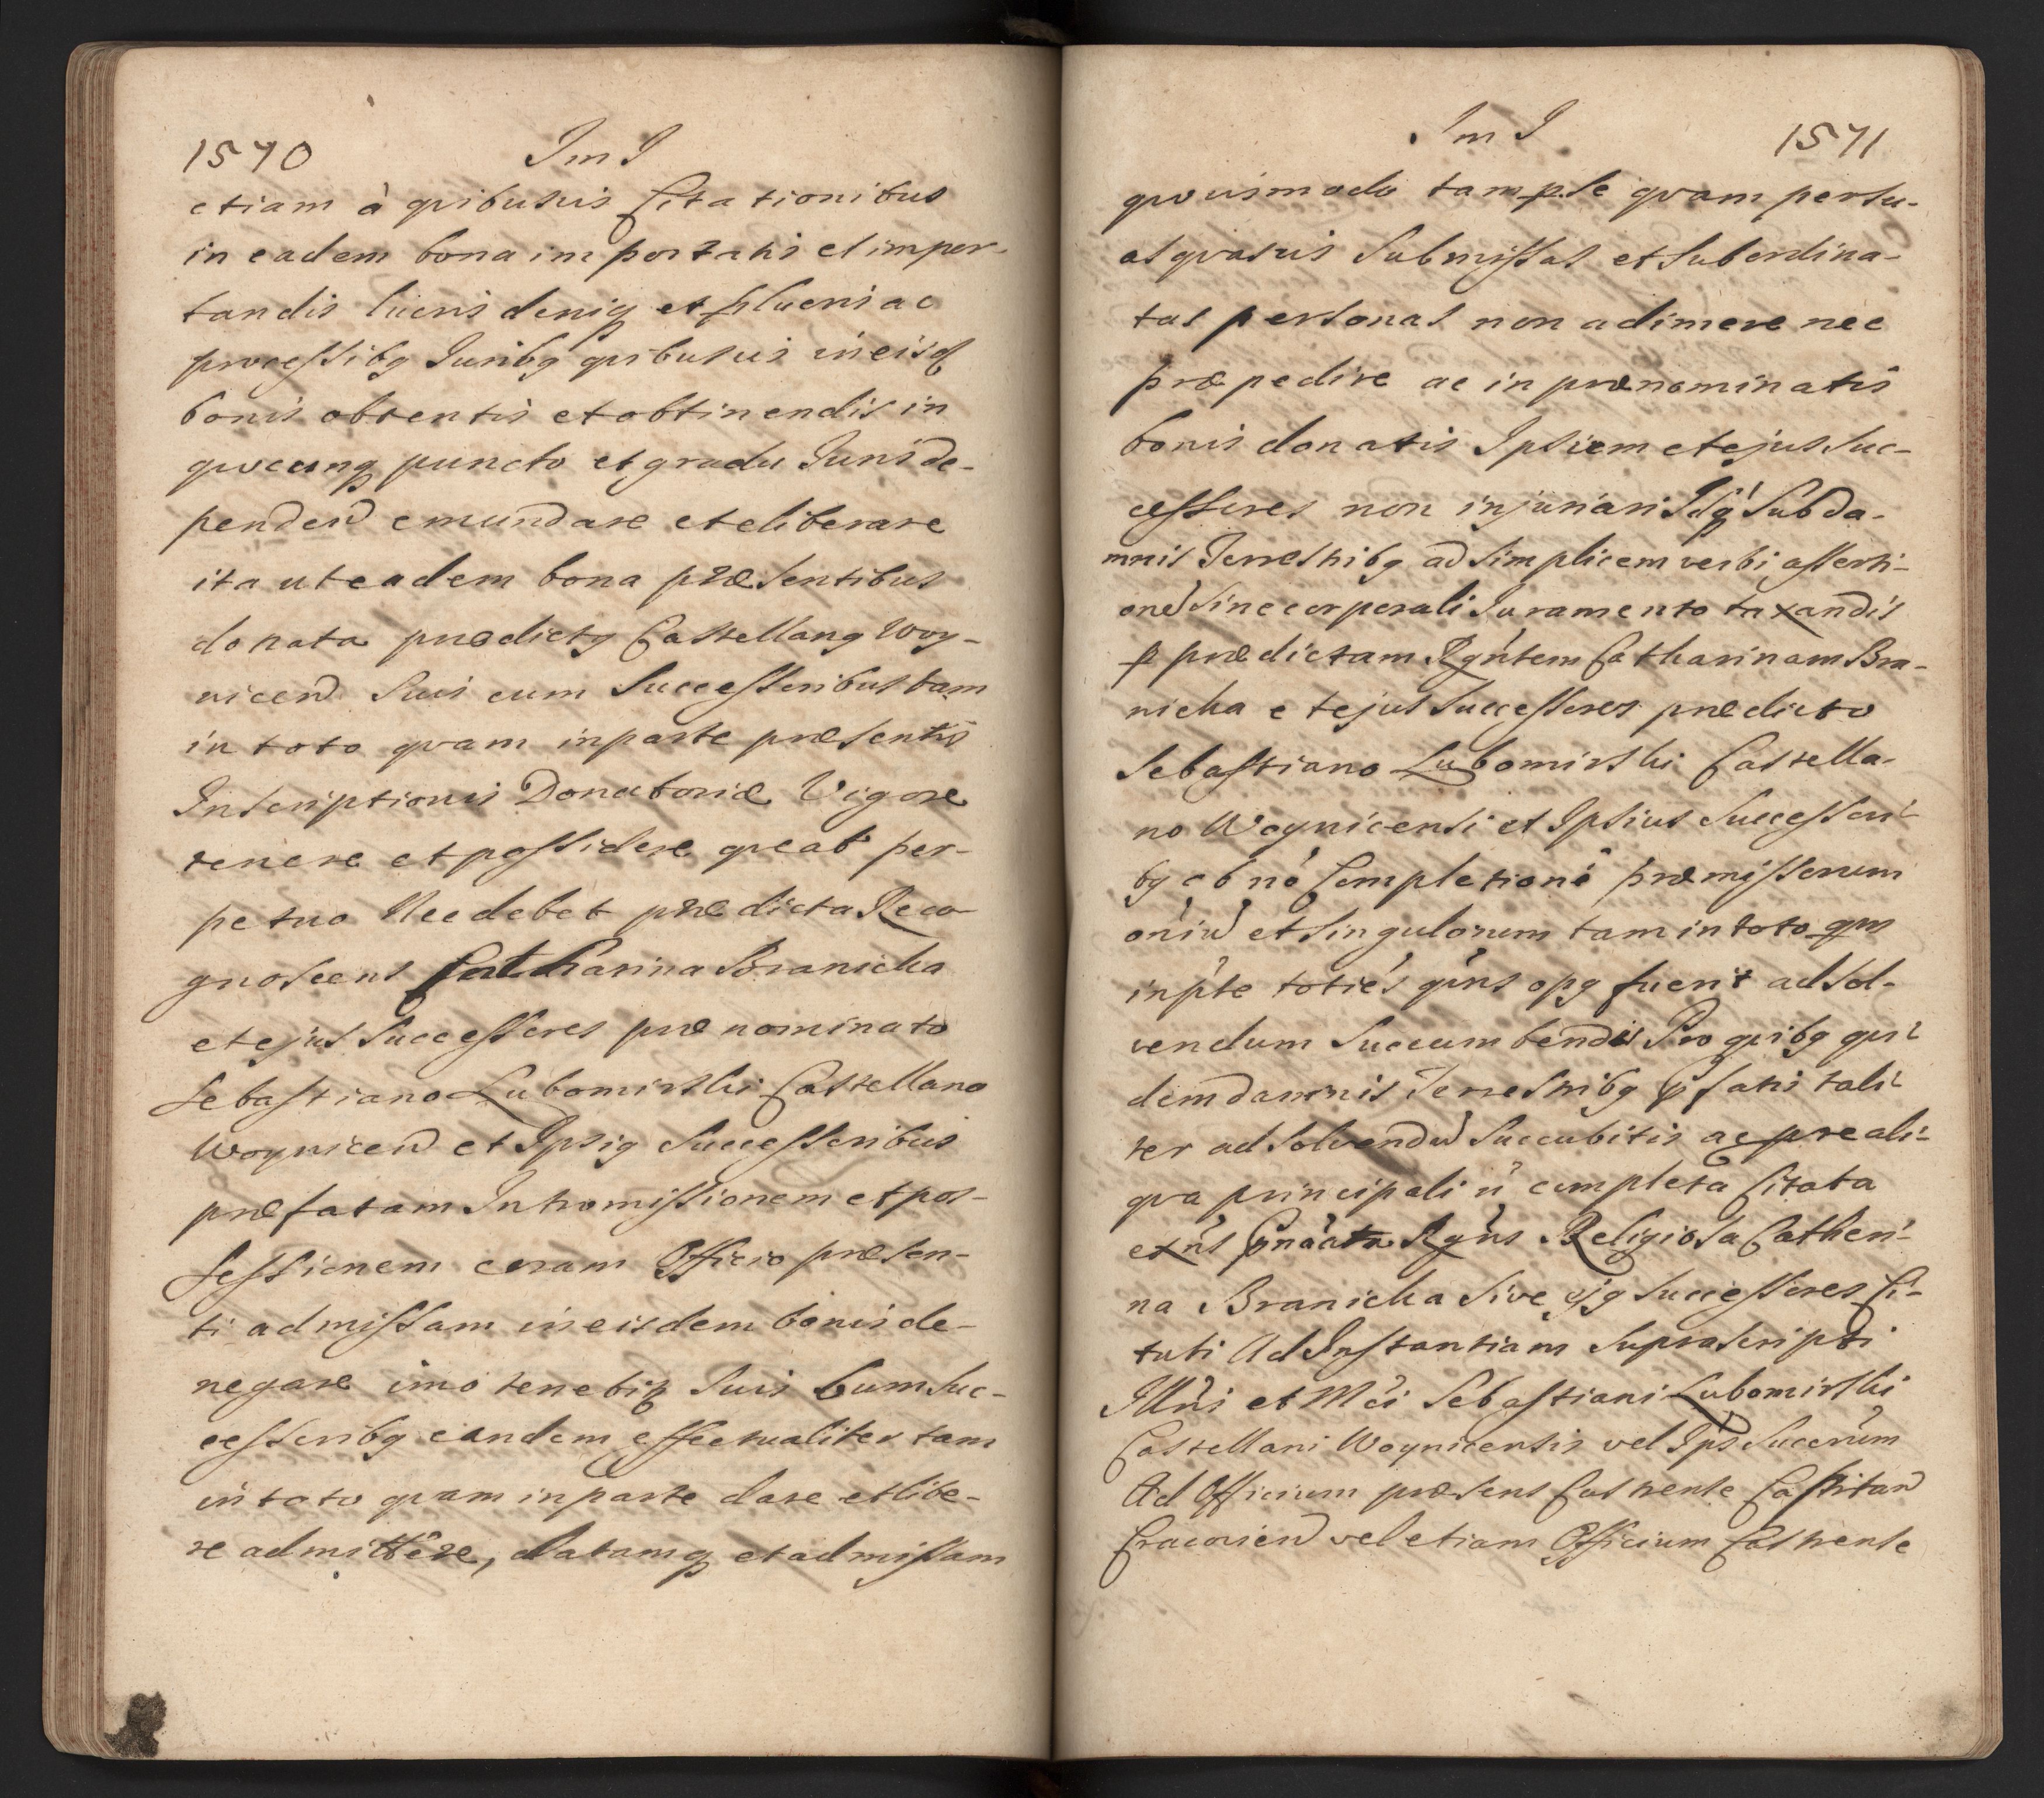 1570 Im I
etiam à quibusuis Citationibus
in eadem bona importatis et impor-
tandis lucris deniq et
processibq Juribq quibusuis in eisd
bonis obtentis et obtinendis in
quocunq puncto et gradu Juris de-
penden emundare et eliberare
ita ut eadem bona præsentibus
donata prædictq Castellanq Woy-
nicen Suis cum Successoribus tam
in toto qvam in parte præsentis
Inscriptionis Donatoriæ Vigore
tenere et possidere qveat per-
petuo Nec debet prædicta Reco-
gnoscens Catharina Branicka
et ejus Successores prænominato
Sebastiano Lubomirski Castellano
Woynicen et Ipsiq Successoribus
præfatam Intromissionem et pos-
sessionem coram Officio præsen-
ti admissam in eisdem bonis de-
negare imò tenebiq Suis cum Suc-
cessoribq eandem effectualiter tam
in toto qvam in parte dare et libe-
re admittere, datamq et admissam
Im I 1571
qvouismodo tam p Se qvam per su-
as qvasuis Submissas et Subordina-
tas personas non adimere nec
præpedire ac in prænominatis
bonis donatis Ipsum et ejus Suc-
cessores non injuriari Idq Sub da-
mnis Terrestribq ad simplicem verbi asserti-
one Sine corporali Juramento taxandis
p prædictam Rgntem Catharinam Bra-
nicka et ejus Successores prædicto
Sebastiano Lubomirski Castella-
no Woynicensi et Ipsius Successori-
bq ob nò Completione præmissorum
oniu et Singulorum tam in toto qm
in pte toties qns opq fuerit ad Sol-
vendum Succumbendis Pro qvibq qvi-
dem damnis Terrestribq pfatis tali-
ter ad Solvendu Succubitis ac pro ali-
qva principali n completa Citata
exns Rgns Religiosa Catheri-
na Branicka Sive ejq Successores Ci-
tati Ad Instantiam Suprascripti
Illris et Mci Sebastiani Lubomirski
Castellani Woynicensis vel Ips Succrum
Ad Officium præsens Castrense Capitan
Cracovien vel etiam Officium Castrense